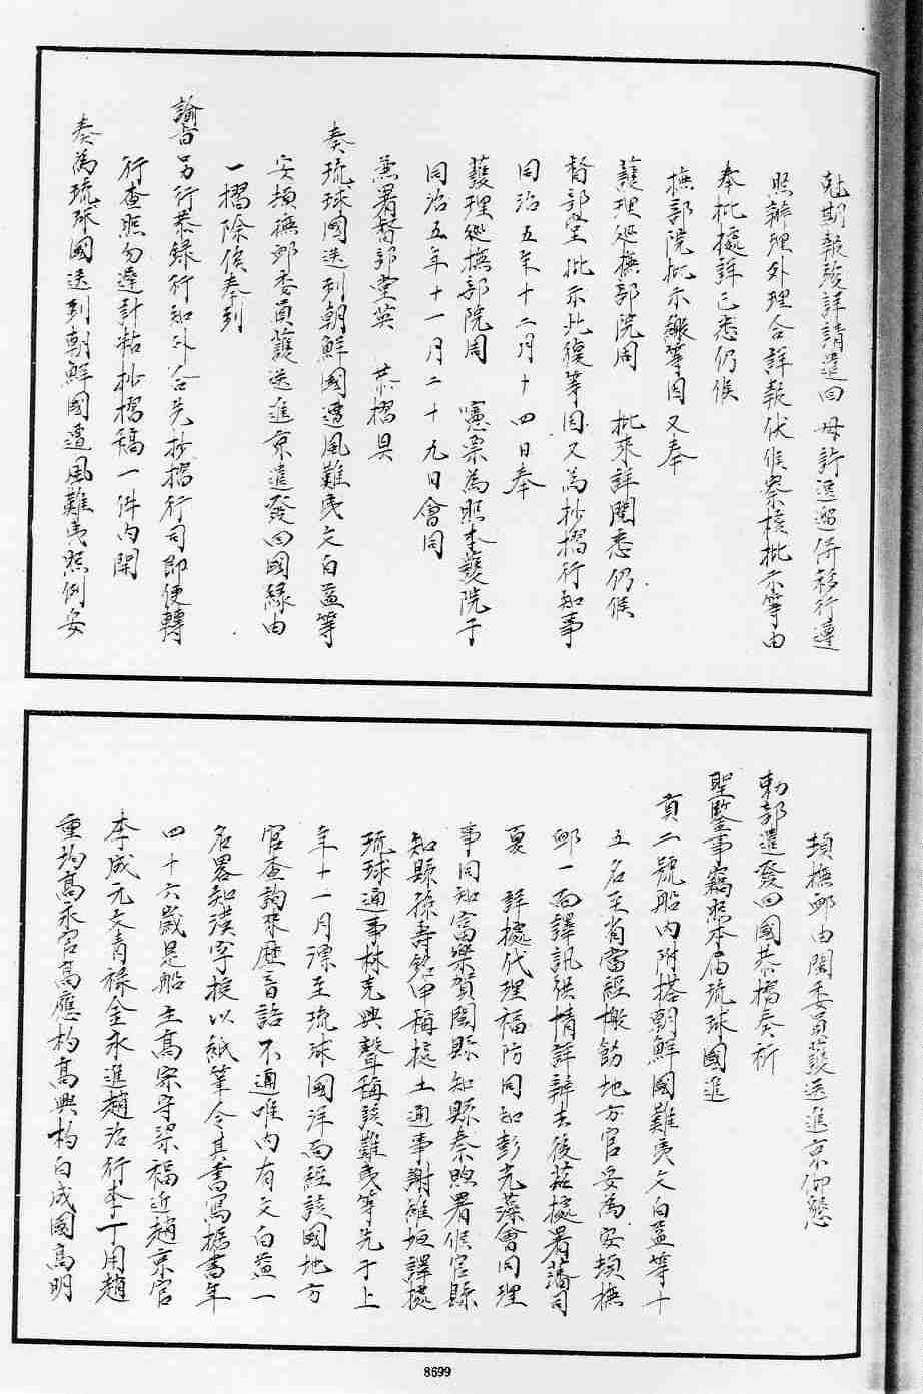 尅期報竣詳請遣回毋許逗遛倘移行遵
照辦理外理合詳報伏候察核批示等由
奉批據詳已悉仍候
撫部院批示繳等因又奉
護理巡撫部院周　批來詳閱悉仍候
督部堂批示此復等因又為抄摺行知事
同治五年十二月十四日奉
護理巡撫部院周　憲票為照本護院于
同治五年十一月二十九日會同
兼署督部堂英　恭摺具
奏琉球國送到朝鮮國遭風難夷文白益等
安頓撫卹委員護送進京遣發回國緣由
一摺除俟奉到
諭旨另行恭錄行知外合先抄摺行司即便轉
行查照勿違計粘抄摺稿一件內開
奏為琉球國送到朝鮮國遭風難夷照例安
頓撫卹由閩委員護送進京仰懇
勅部遣發回國恭摺奏祈
聖鑒事竊照本屆琉球國進
貢二號船內附搭朝鮮國難夷文白益等十
五名至省當經檄飭地方官妥為安頓撫
卹一面譯訊供情詳辦去後茲據署藩司
夏　詳據代理福防同知彭光藻會同理
事同知富樂賀閩縣知縣秦煦署候官縣
知縣孫壽銘申稱據土通事謝維垣譯據
琉球通事林克興聲稱該難夷等先于上
年十一月漂至琉球國洋面經該國地方
官查詢來歷言語不通唯內有文白益一
名畧知漢字授以紙筆令其書寫據書年
四十六歲是船主高宗守梁福近趙京官
李成元文青祿金永進趙治行李丁用趙
重均高永官高應杓高興杓白成國高明
8699